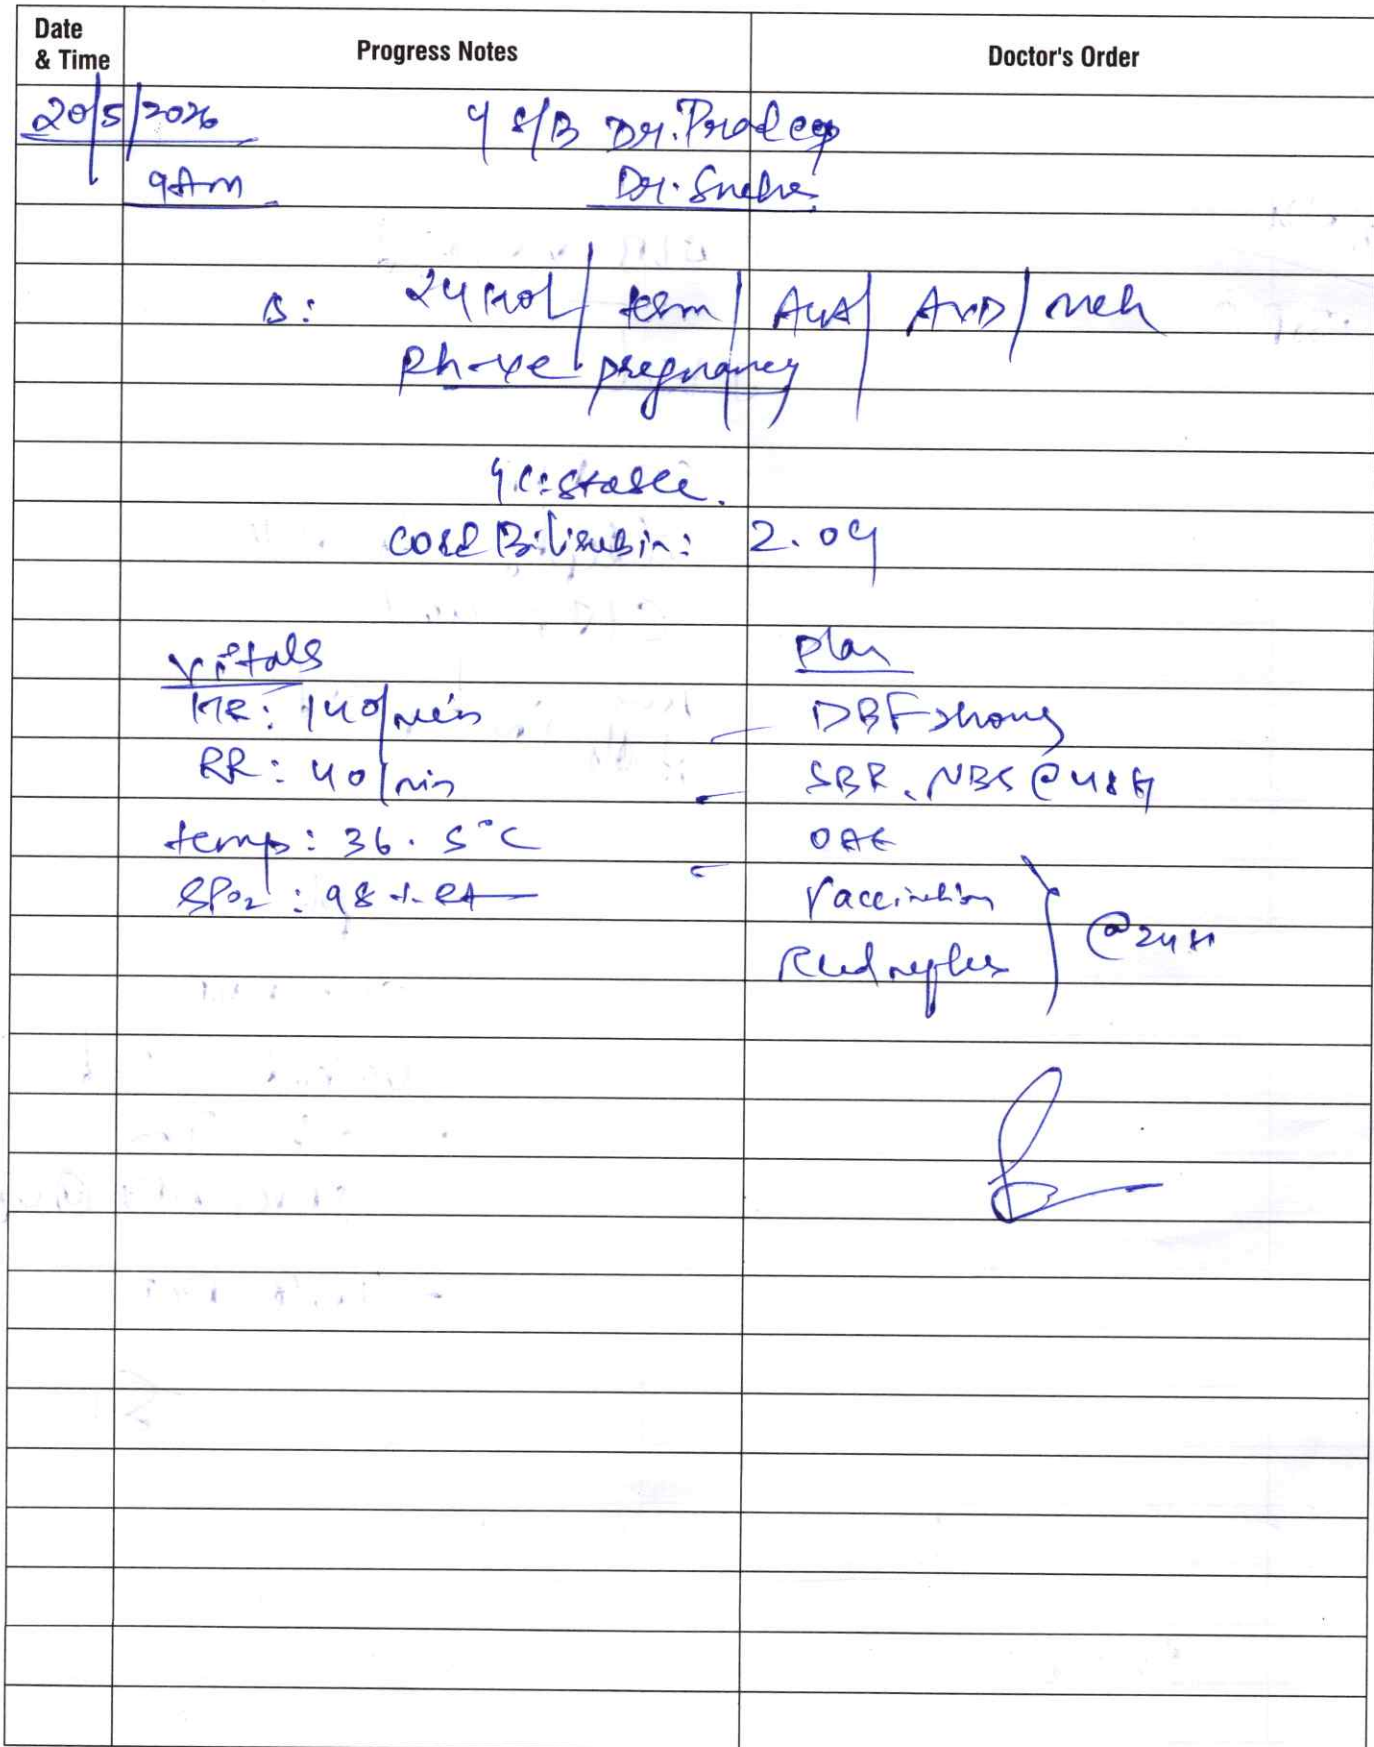 Date & Time
Progress Notes
Doctor's Order
20/5/2026
S/B Dr. Pradeep
9Am
Dr. Sneha
24 HOL / term / AGA / AVD / mch
Rh -ve pregnancy
C: stable.
Cord Bilirubin: 2.09
Vitals
HR: 140/min
RR: 40/min
temp: 36.5°C
SPO2: 98 % RA
Plan
- DBF
- SBR, NBS @ 48 H
- OAE
Vaccination
Red reflex
@ 24 H